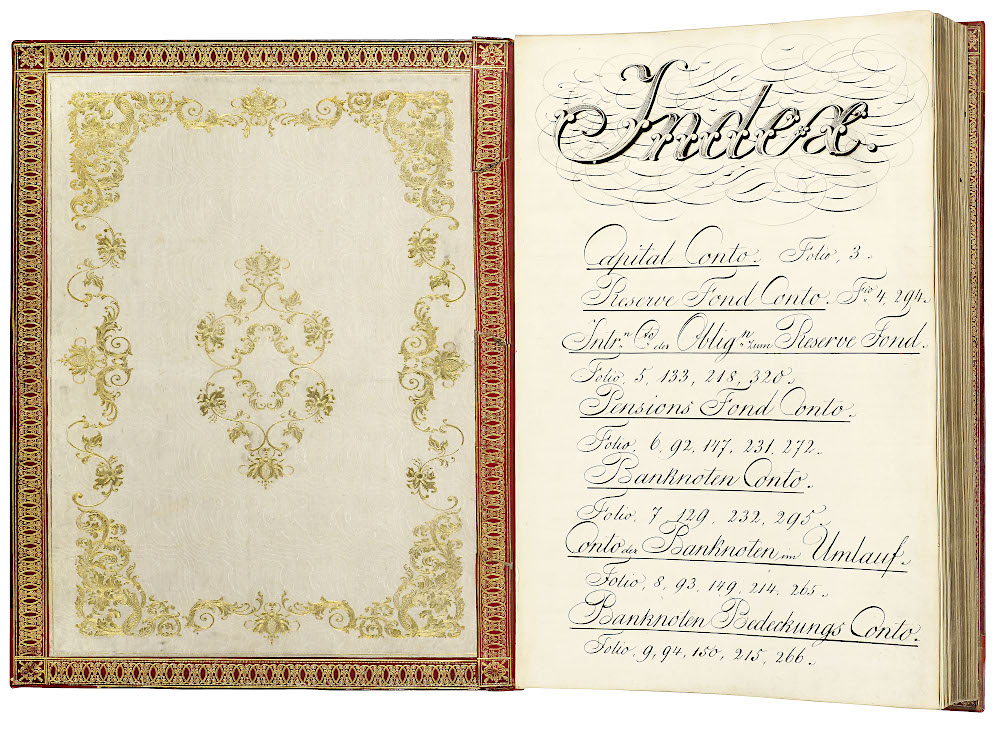 Index.
Capital Conto. Folio, 3.
Reserve Fond Conto. Fio 4, 294.
Intr.n Cto der Oblig.n zum Reserve Fond.
Folio, 5, 133, 218, 320.
Pensions Fond Conto.
Folio, 6, 92, 147, 231, 272.
Banknoten Conto.
Folio, 7, 129, 232, 295.
Conto der Banknoten im Umlauf.
Folio, 8, 93, 149, 214, 265.
Banknoten Bedeckungs Conto.
Folio, 9, 94, 150, 215, 266.